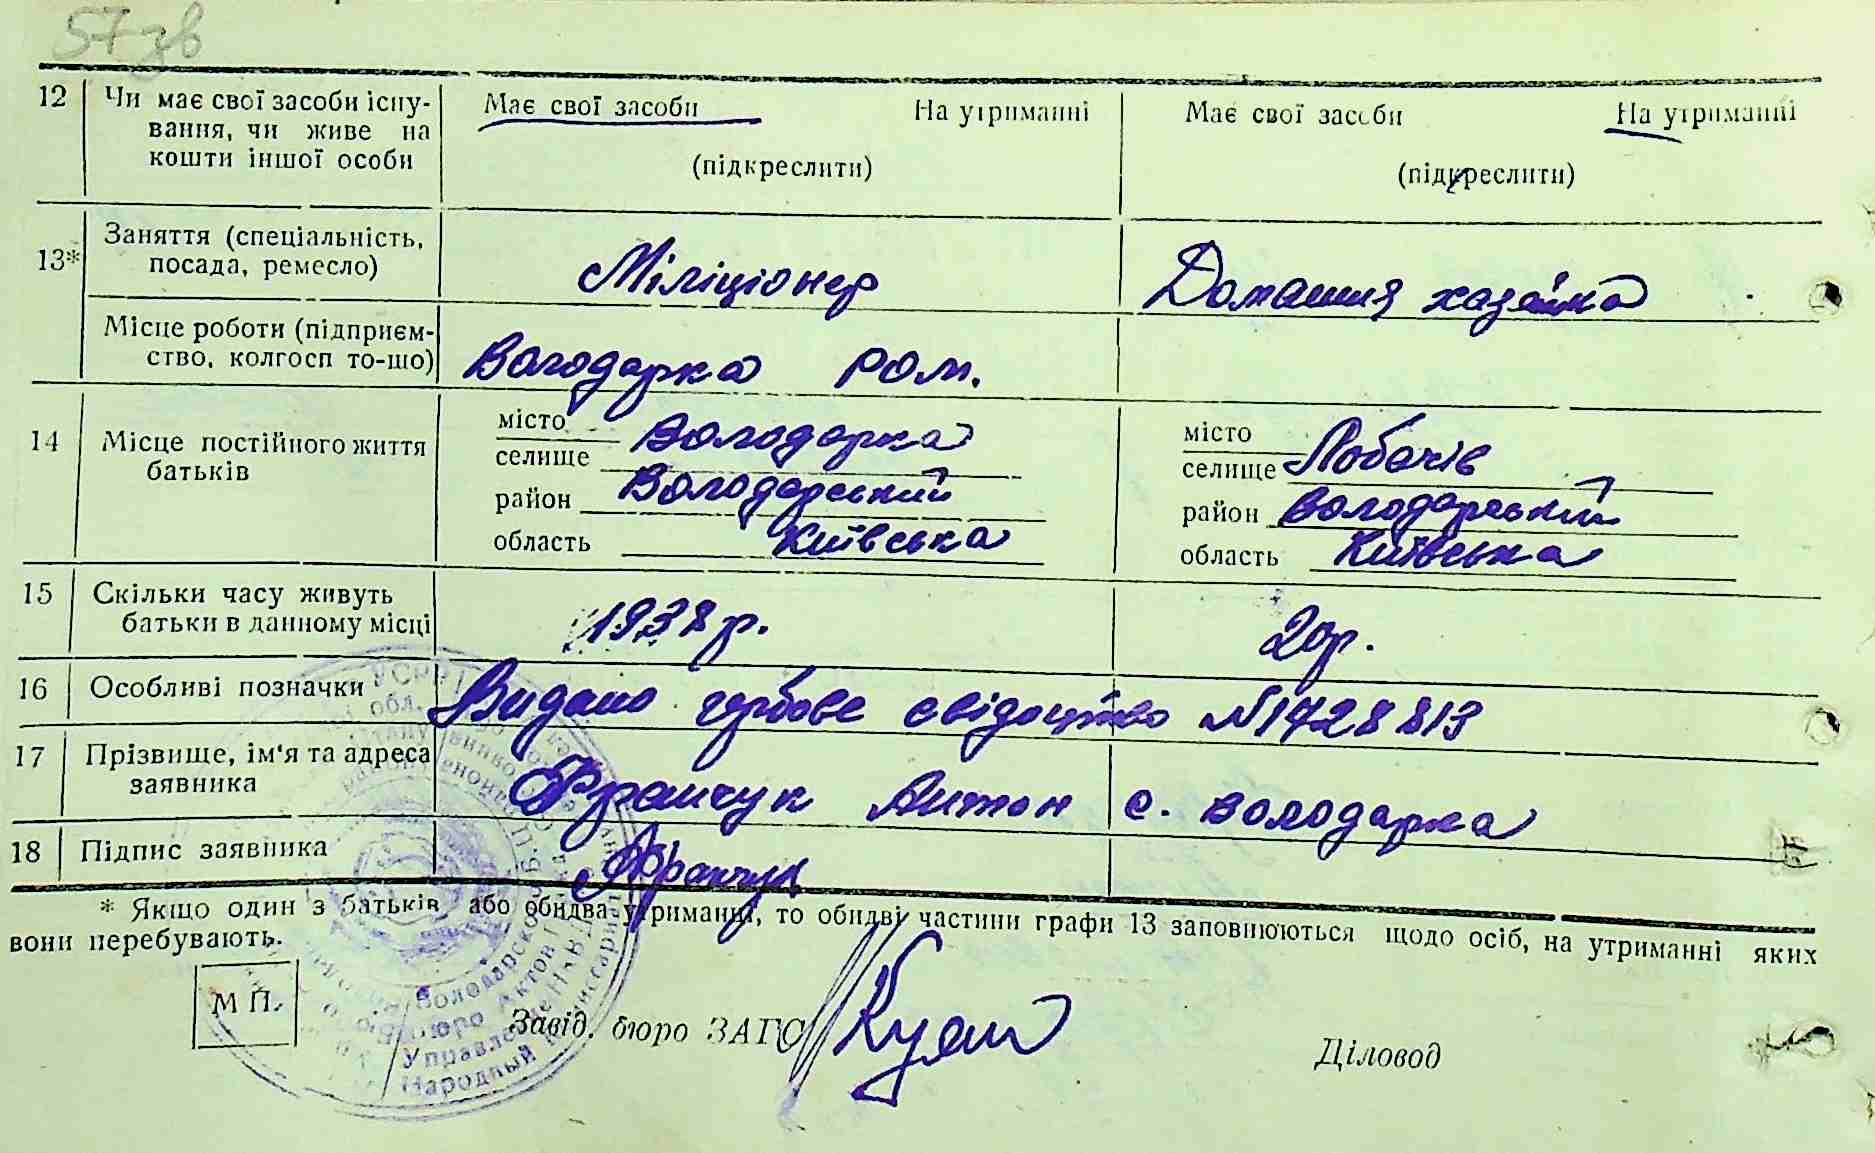 57 зв
12 Чи має свої засоби існу- Має свої засоби На утриманні Має свої засоби На утриманні
вання, чи живе на
кошти іншої особи (підкреслити) (підкреслити)
13* Заняття (спеціальність, Міліціонер Домашня хазяйка
посада, ремесло)
Місце роботи (підприєм- Володарка РОМ.
ство, колгосп то-що)
14 Місце постійного життя місто Володарка місто Лобачів
батьків селище селище
район Володарський район Володарський
область Київська область Київська
15 Скільки часу живуть 1938 р. 20 р.
батьки в данному місці
16 Особливі позначки Видано гербове свідоцтво №1428813
17 Прізвище, ім'я та адреса Франчук Антон с. Володарка
заявника
18 Підпис заявника Франчук
* Якщо один з батьків або обидва утриманці, то обидві частини графи 13 заповнюються щодо осіб, на утриманні яких
вони перебувають.
М П. Завід. бюро ЗАГС Діловод
Володарское
Бюро Актов
Управление НКВД
Народный Комиссариат